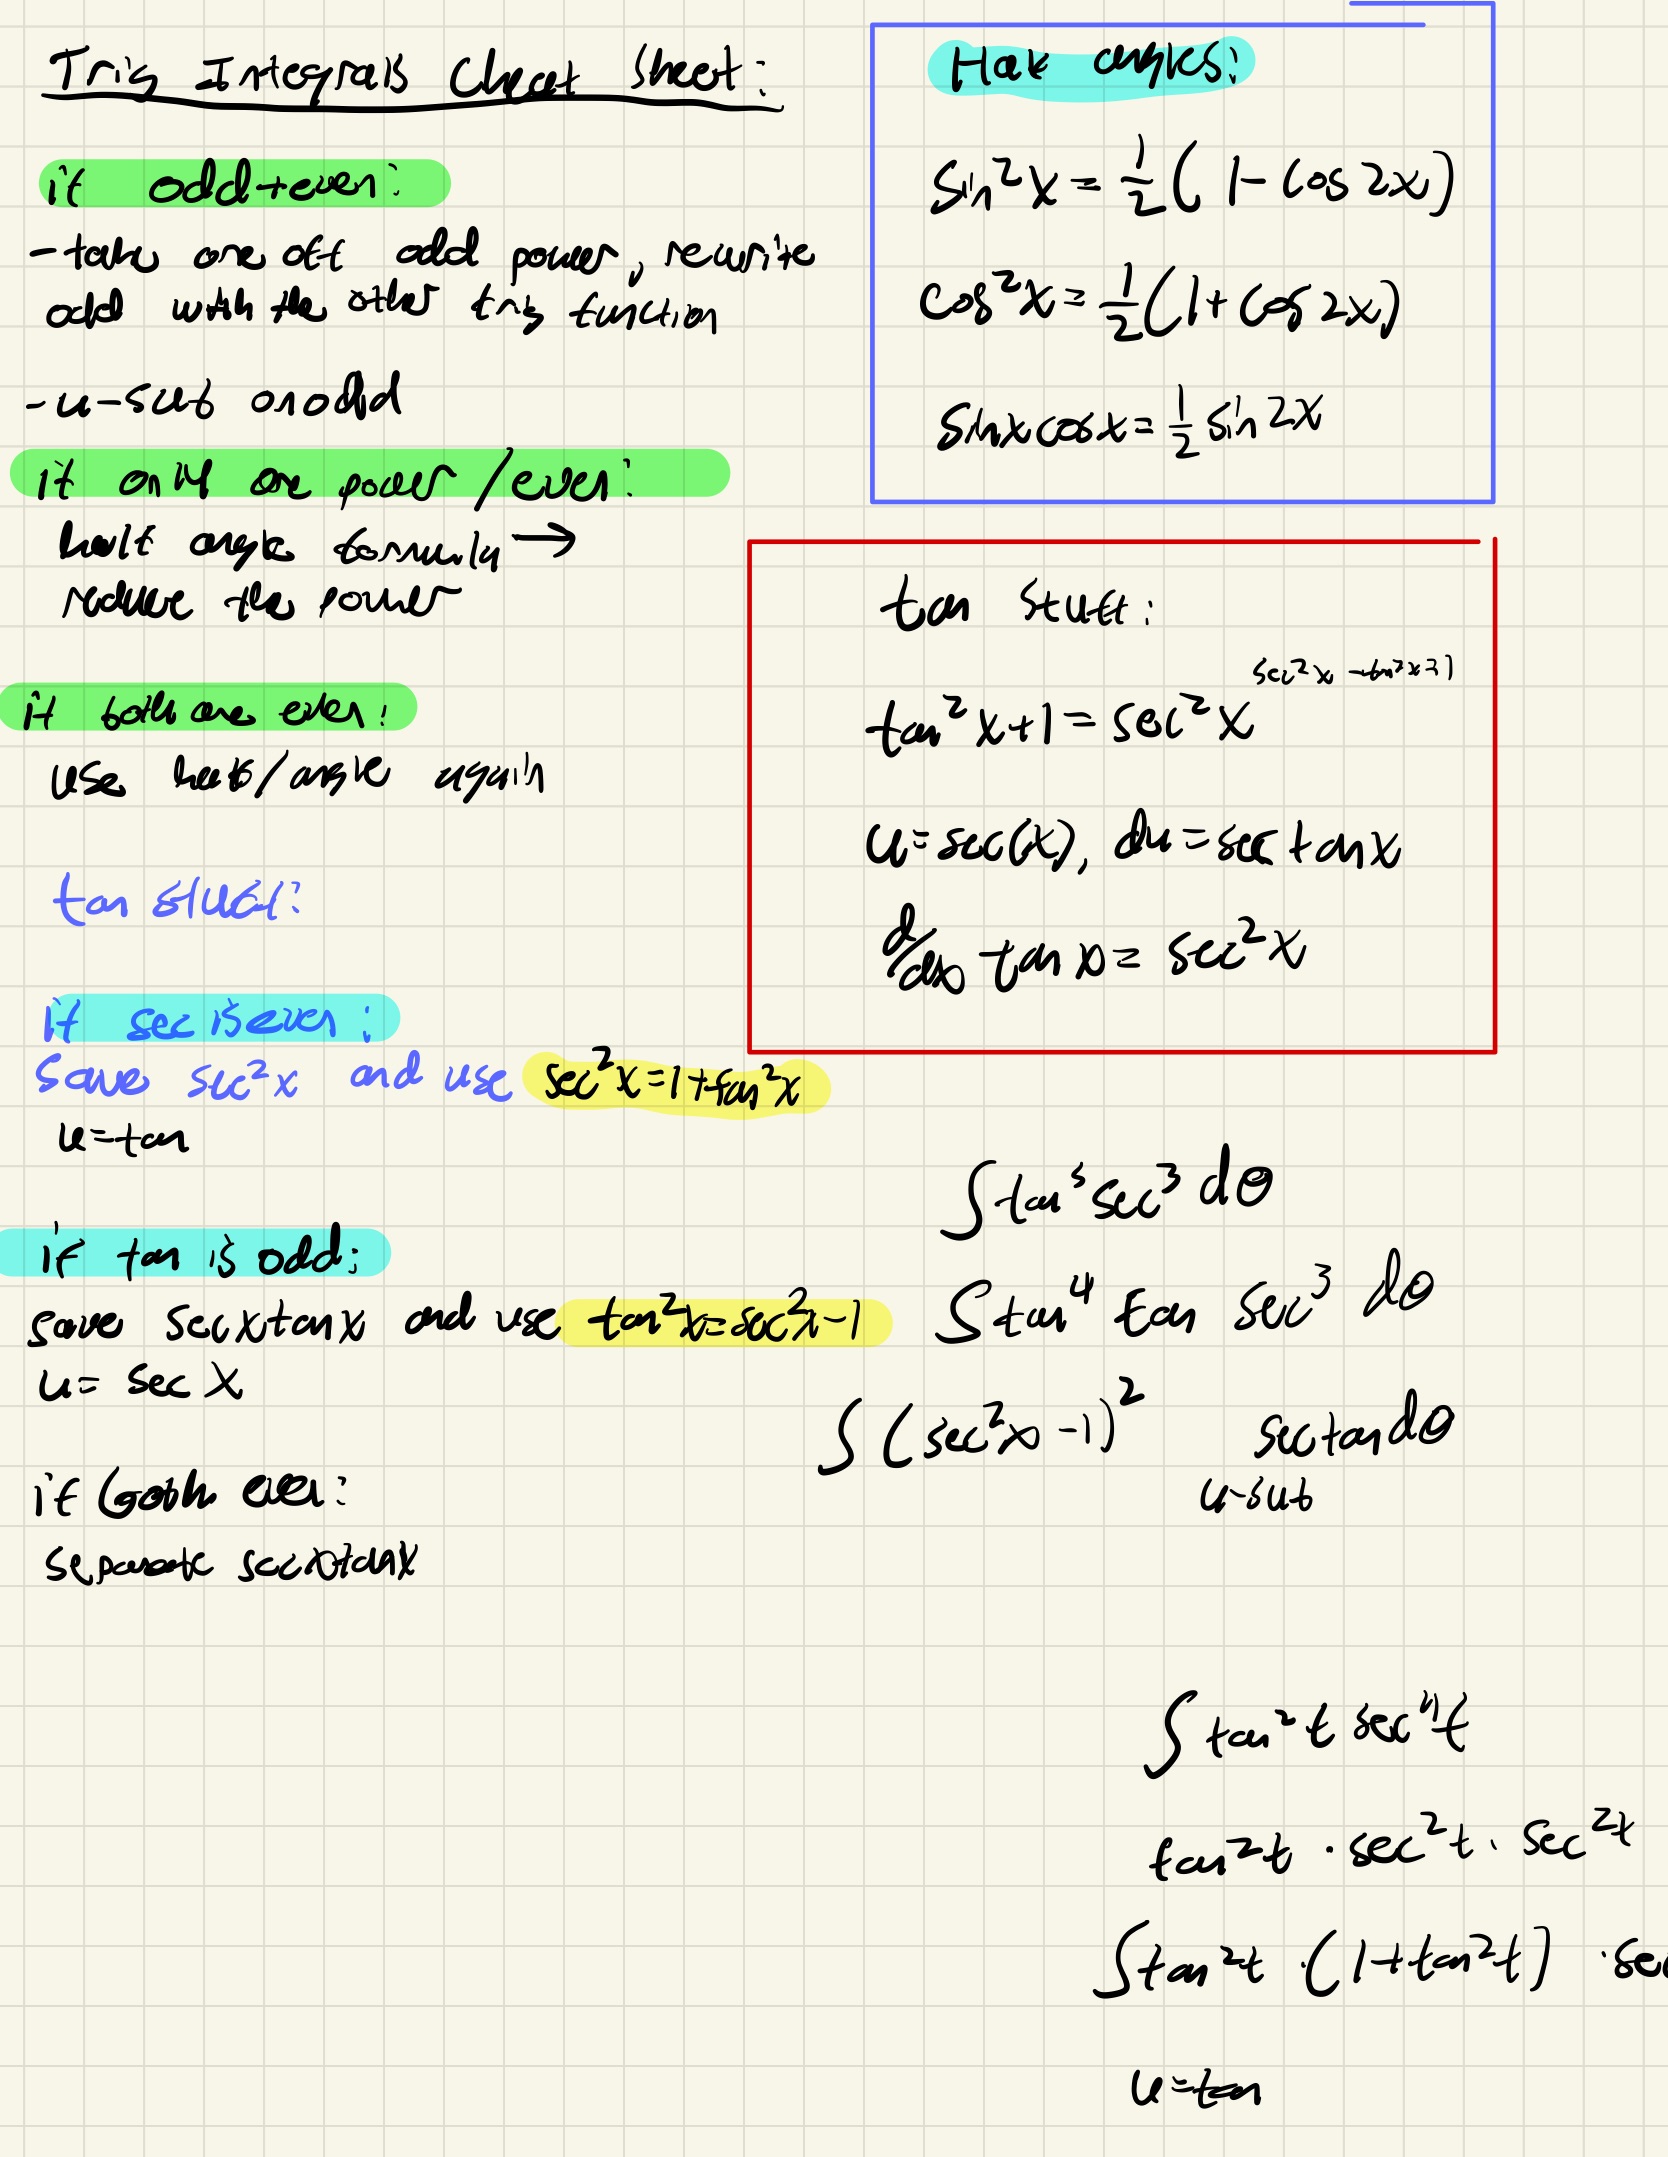 Trig Integrals Cheat Sheet:
if odd+even:
- take one off odd power, rewrite
odd with the other trig function
- u-sub on odd
if only one power/even:
half angle formula →
reduce the power
if both are even:
use half/angle again
tan stuff:
if sec is even:
save sec²x and use sec²x=1+tan²x
u=tan
if tan is odd:
save secxtanx and use tan²x=sec²x-1
u= sec x
if both even:
separate secxtanx
Half angles:
sin²x = 1/2 ( 1-cos 2x)
cos²x = 1/2 (1+cos 2x)
sinxcosx = 1/2 sin 2x
tan stuff:
sec²x -tan²x=1
tan²x+1 = sec²x
u=sec(x), du=sec tanx
d/dx tan x = sec²x
∫tan⁵sec³ dθ
∫tan⁴ tan sec³ dθ
∫(sec²x -1)² sectandθ
u-sub
∫tan²t sec⁴t
tan²t · sec²t · sec²t
∫tan²t · (1+tan²t) · sec
u=tan